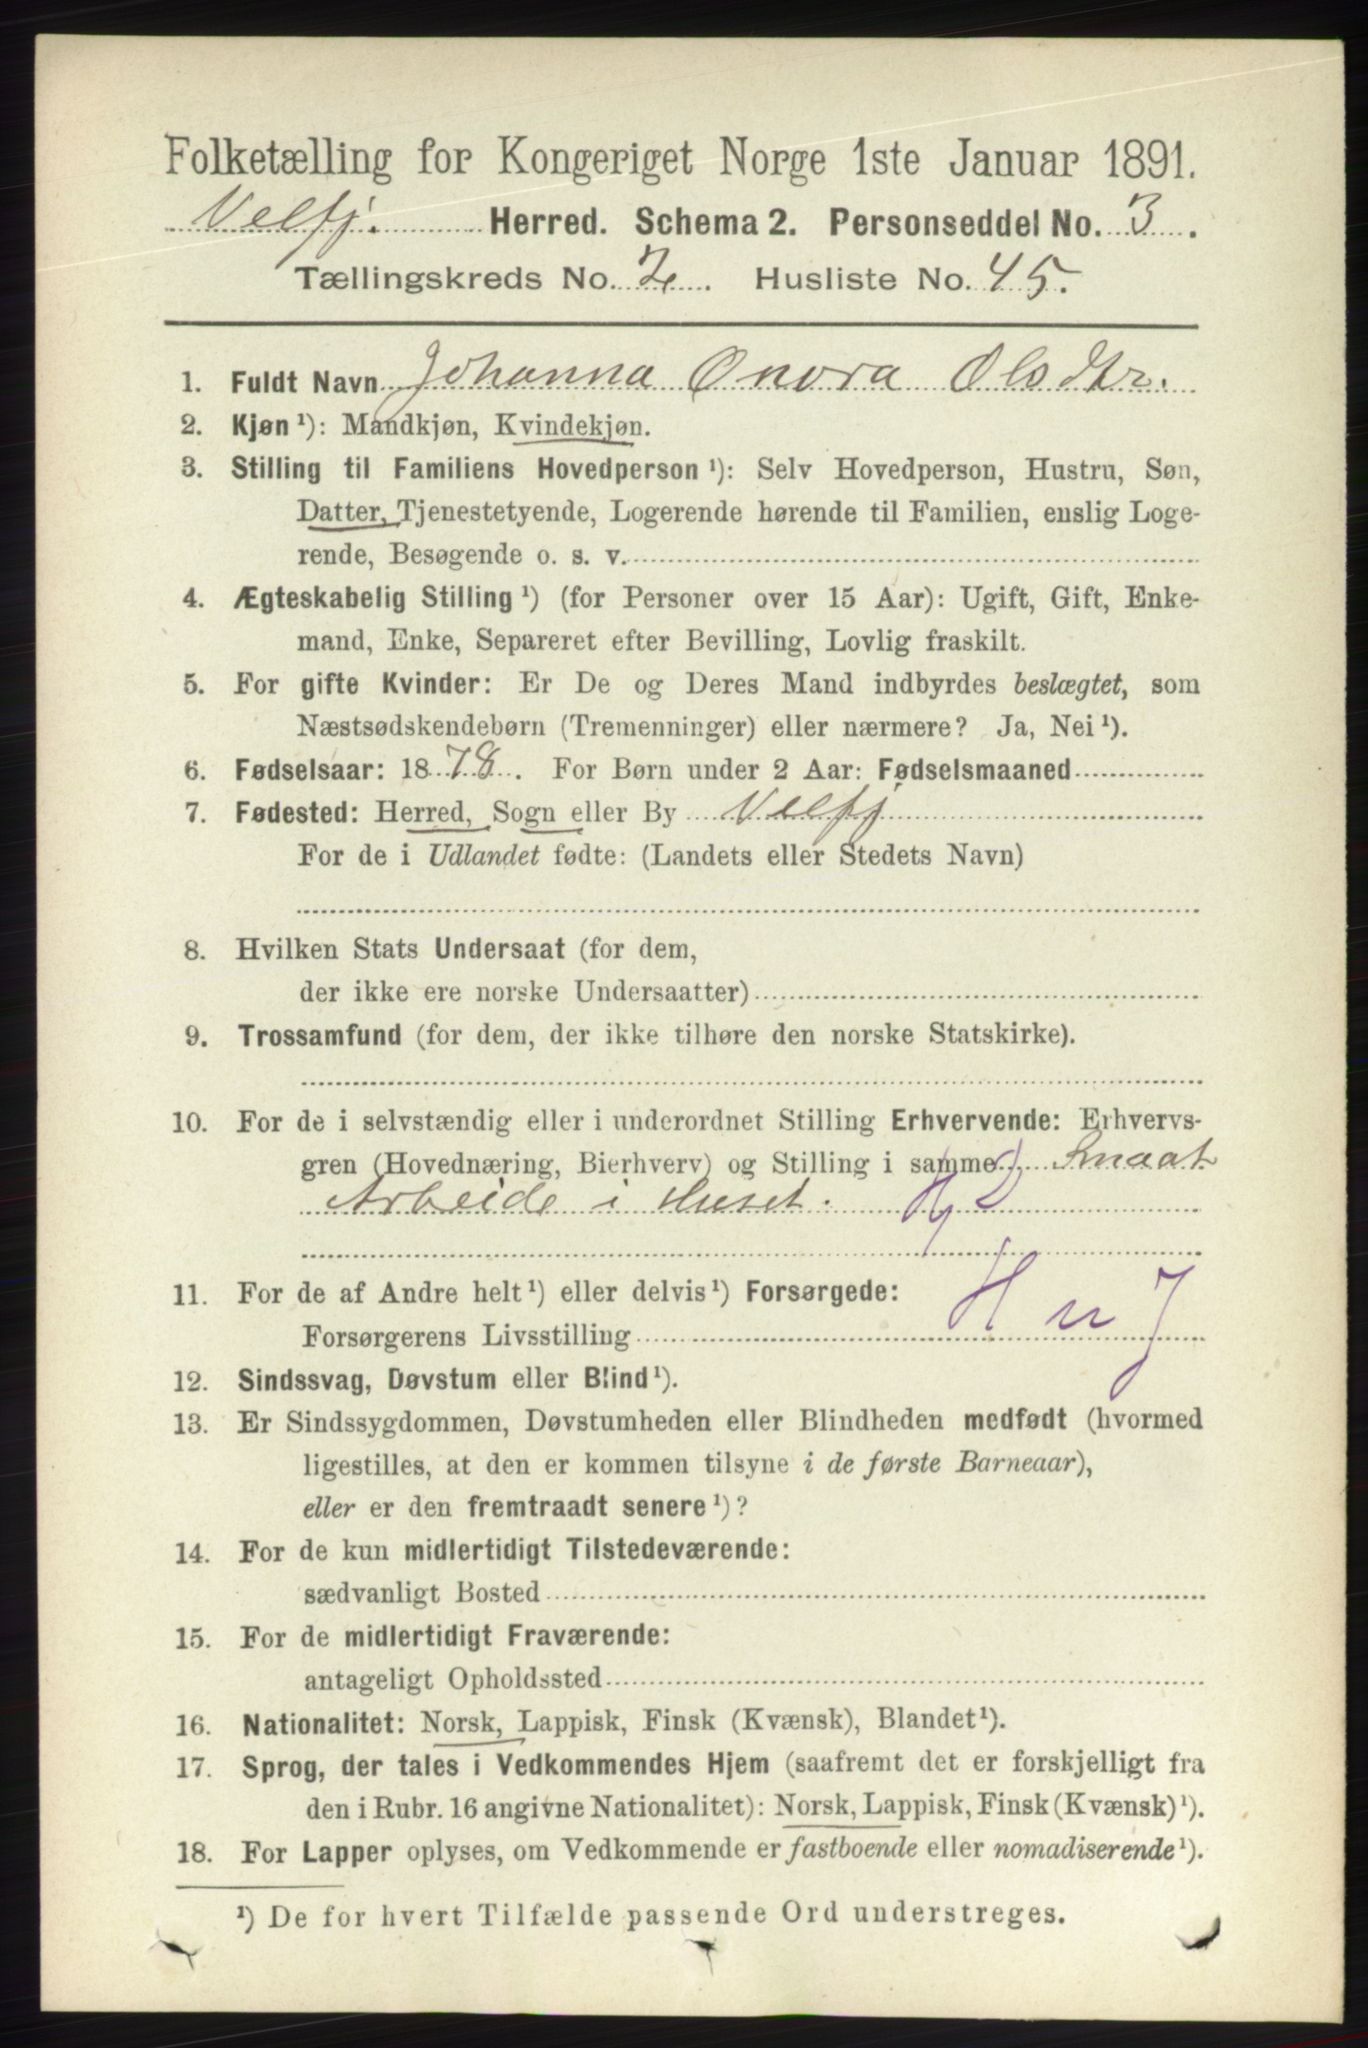 Folketælling for Kongeriget Norge 1ste Januar 1891.
Velfj. Herred. Schema 2. Personseddel No. 3.
Tællingskreds No. 2. Husliste No. 45.
1. Fuldt Navn Johanna Onora Olsdtr.
2. Kjøn ¹): Mandkjøn, Kvindekjøn.
3. Stilling til Familiens Hovedperson ¹): Selv Hovedperson, Hustru, Søn,
Datter, Tjenestetyende, Logerende hørende til Familien, enslig Loge-
rende, Besøgende o. s. v.
4. Ægteskabelig Stilling ¹) (for Personer over 15 Aar): Ugift, Gift, Enke-
mand, Enke, Separeret efter Bevilling, Lovlig fraskilt.
5. For gifte Kvinder: Er De og Deres Mand indbyrdes beslægtet, som
Næstsødskendebørn (Tremenninger) eller nærmere? Ja, Nei ¹).
6. Fødselsaar: 1878. For Børn under 2 Aar: Fødselsmaaned
7. Fødested: Herred, Sogn eller By Velfj
For de i Udlandet fødte: (Landets eller Stedets Navn)
8. Hvilken Stats Undersaat (for dem,
der ikke ere norske Undersaatter)
9. Trossamfund (for dem, der ikke tilhøre den norske Statskirke).
10. For de i selvstændig eller i underordnet Stilling Erhvervende: Erhvervs-
gren (Hovednæring, Bierhverv) og Stilling i samme). Smaat
Arbeide i Huset.
11. For de af Andre helt ¹) eller delvis ¹) Forsørgede: H u J
Forsørgerens Livsstilling
12. Sindssvag, Døvstum eller Blind ¹).
13. Er Sindssygdommen, Døvstumheden eller Blindheden medfødt (hvormed
ligestilles, at den er kommen tilsyne i de første Barneaar),
eller er den fremtraadt senere ¹)?
14. For de kun midlertidigt Tilstedeværende:
sædvanligt Bosted
15. For de midlertidigt Fraværende:
antageligt Opholdssted
16. Nationalitet: Norsk, Lappisk, Finsk (Kvænsk), Blandet ¹).
17. Sprog, der tales i Vedkommendes Hjem (saafremt det er forskjelligt fra
den i Rubr. 16 angivne Nationalitet): Norsk, Lappisk, Finsk (Kvænsk) ¹).
18. For Lapper oplyses, om Vedkommende er fastboende eller nomadiserende ¹).
¹) De for hvert Tilfælde passende Ord understreges.